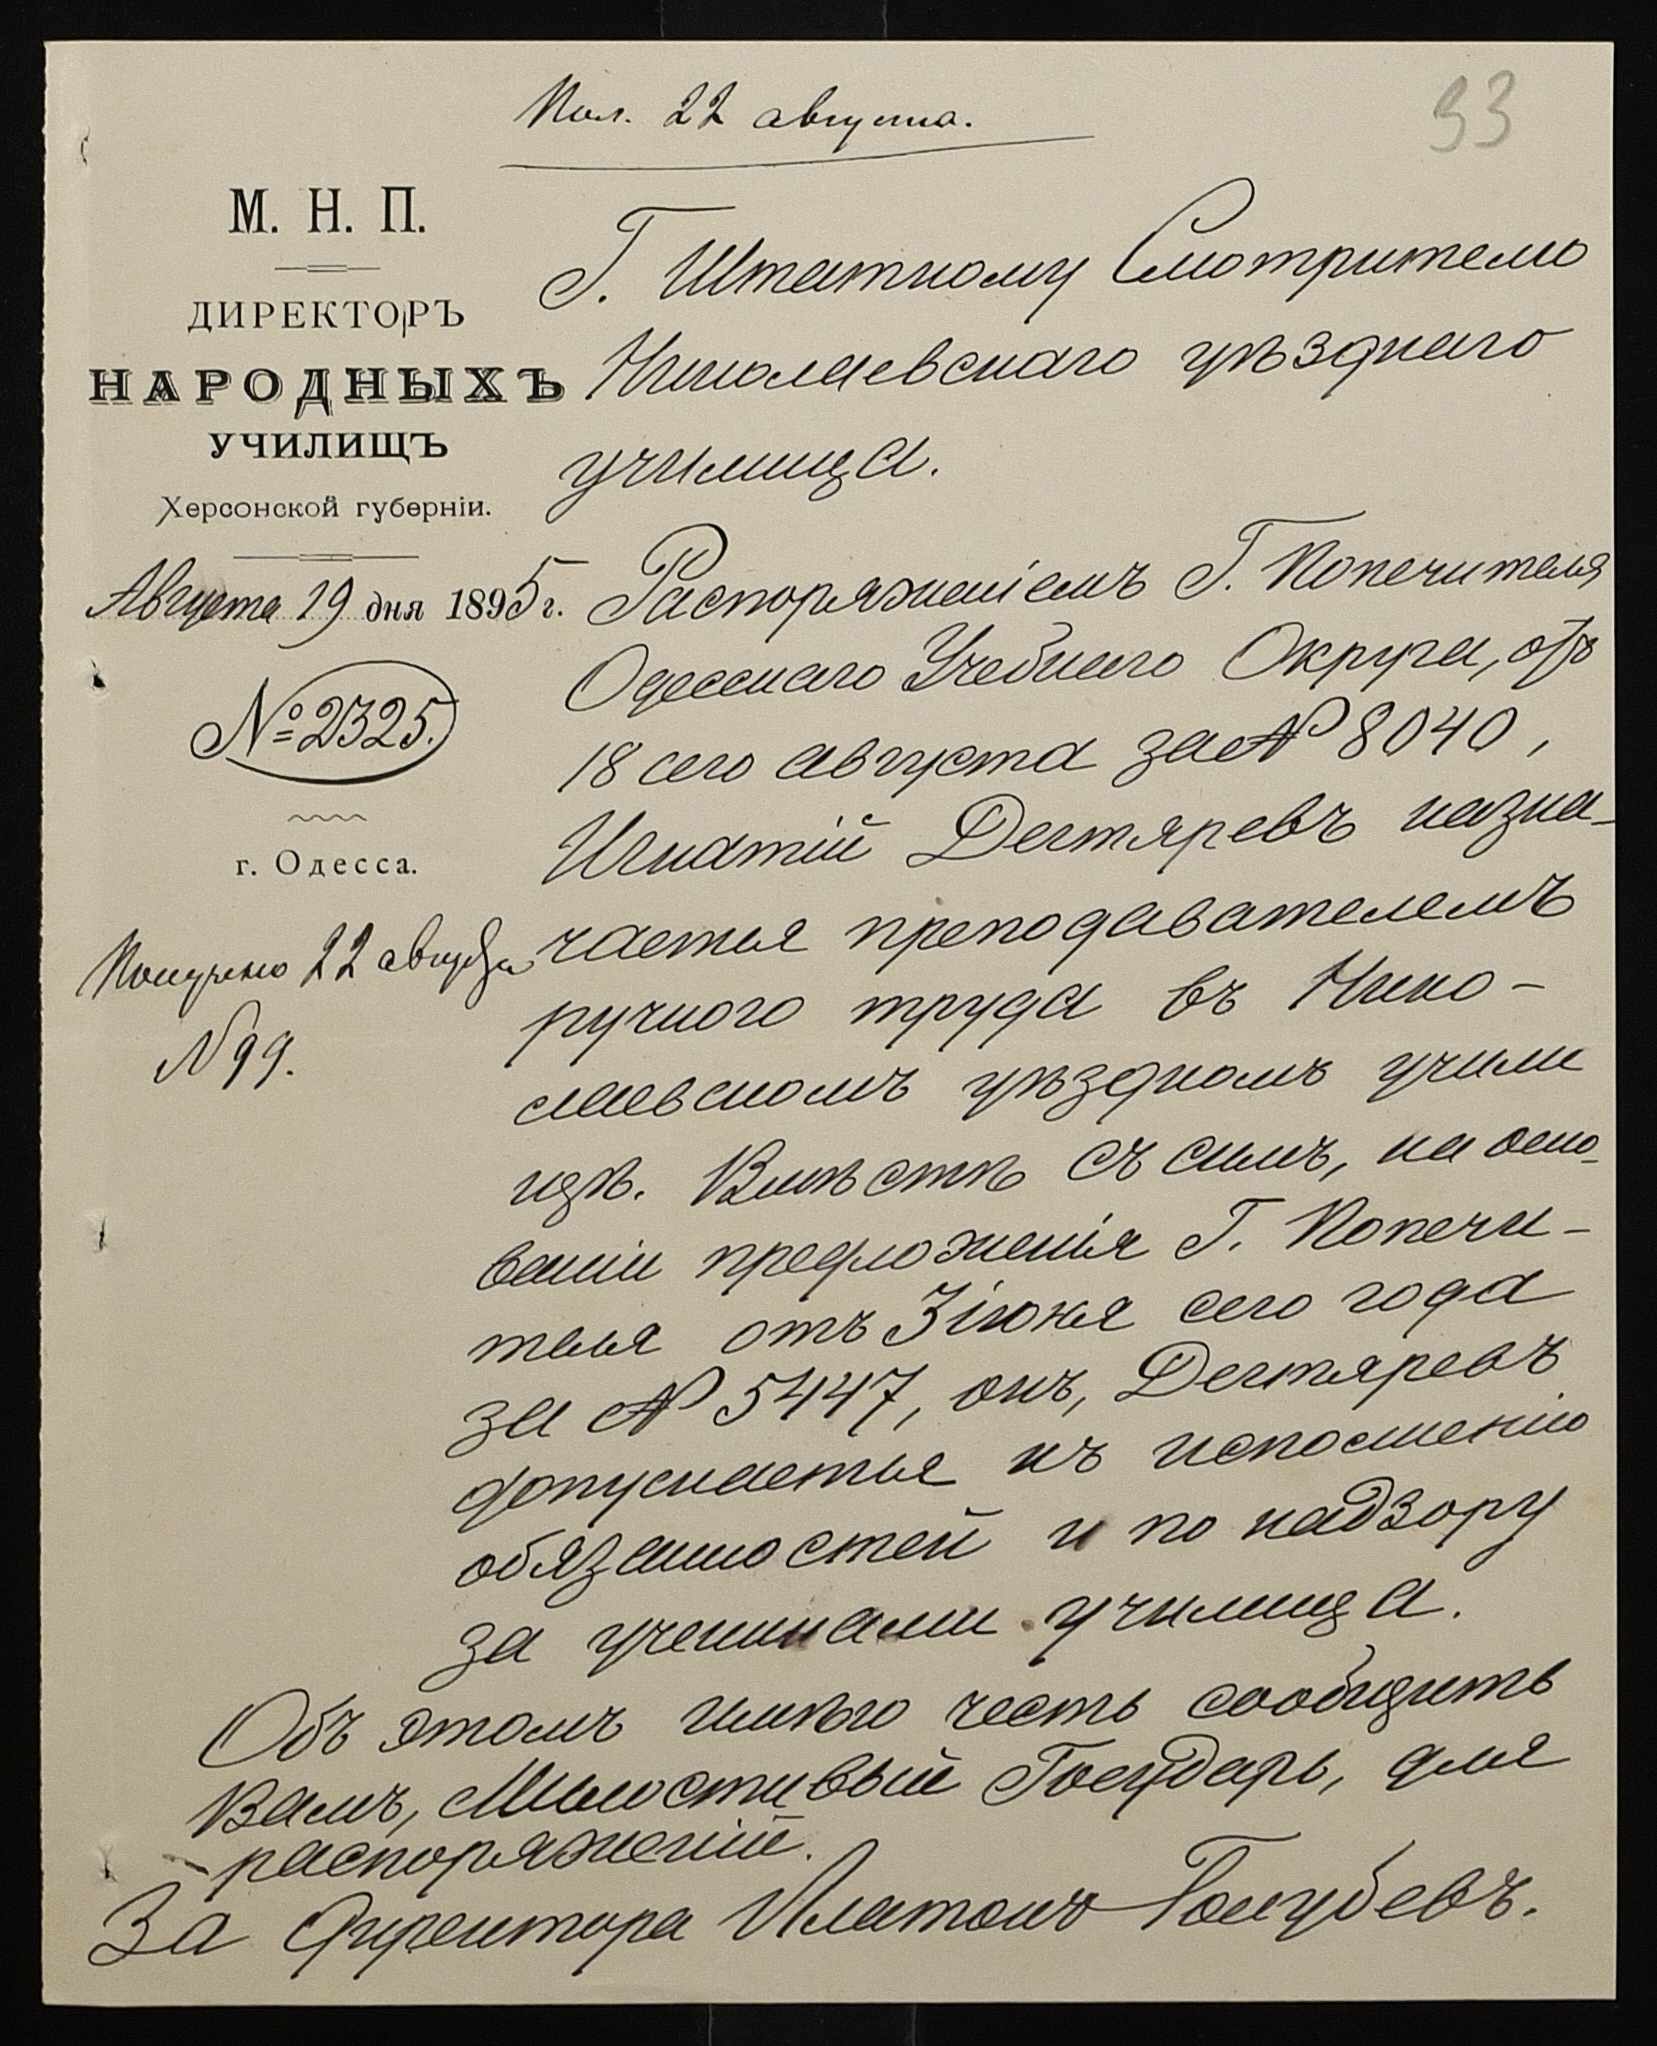 Пол. 22 августа.
93
М. Н. П.
ДИРЕКТОРЪ
НАРОДНЫХЪ
УЧИЛИЩЪ
Херсонской губерніи.
Августа 19 дня 1895 г.
№ 2325.
г. Одесса.
Получено 22 августа
№ 99.
Г. Штатному Смотрителю
Николаевскаго уѣзднаго
училища.
Распоряженіемъ Г. Попечителя
Одесскаго Учебнаго Округа, отъ
18 сего августа за № 8040,
Игнатій Дегтяревъ назна-
чается преподавателемъ
ручного труда въ Нико-
лаевскомъ уѣздномъ учили
щѣ. Вмѣстѣ съ симъ, на осно-
ваніи предложенія Г. Попечи-
теля отъ 3 іюня сего года
за № 5447, онъ, Дегтяревъ
допускается къ исполненію
обязанностей и по надзору
за учениками училища.
Объ этомъ имѣю честь сообщить
Вамъ, Милостивый Государь, для
распоряженій.
За Директора Платонъ Голубевъ.